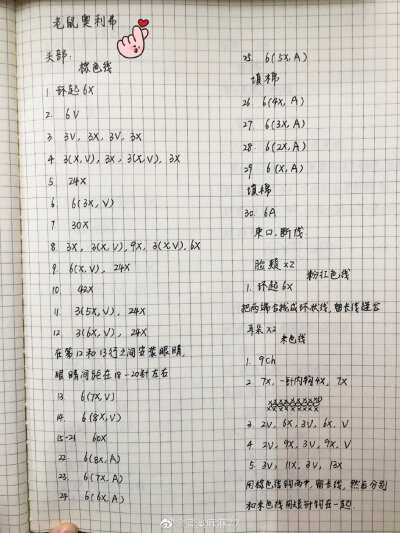 老鼠奥利弗
头部:
棕色线
1. 环起6X
2. 6V
3. 3V, 3X, 3V, 3X
4. 3(X,V), 3X, 3(X,V), 3X
5. 24X
6. 6(3X,V)
7. 30X
8. 3X, 3(X,V), 9X, 3(X,V), 6X
9. 6(X,V), 24X
10. 42X
11. 3(5X,V), 24X
12. 3(6X,V), 24X
在第12和13行之间安装眼睛,
眼睛间距在18-20针左右
13. 6(7X,V)
14. 6(8X,V)
15-21 60X
22. 6(8X,A)
23. 6(7X,A)
24. 6(6X,A)
25. 6(5X,A)
填棉
26. 6(4X,A)
27. 6(3X,A)
28. 6(2X,A)
29 6(X,A)
填棉
30. 6A
束口,断线
脸颊x2
粉红色线
1. 环起6X
把两端合拢成环状线,留长线缝合
耳朵x2
米色线
1. 9ch
2. 7X, 一针内钩4X, 7X
3. 2V, 6X, 3V, 6X, V
4. 2V, 9X, 3V, 9X, V
5. 3V, 11X, 3V, 13X
用棕色线钩两片,留长线,然后分别
和米色线用短针钩在一起.